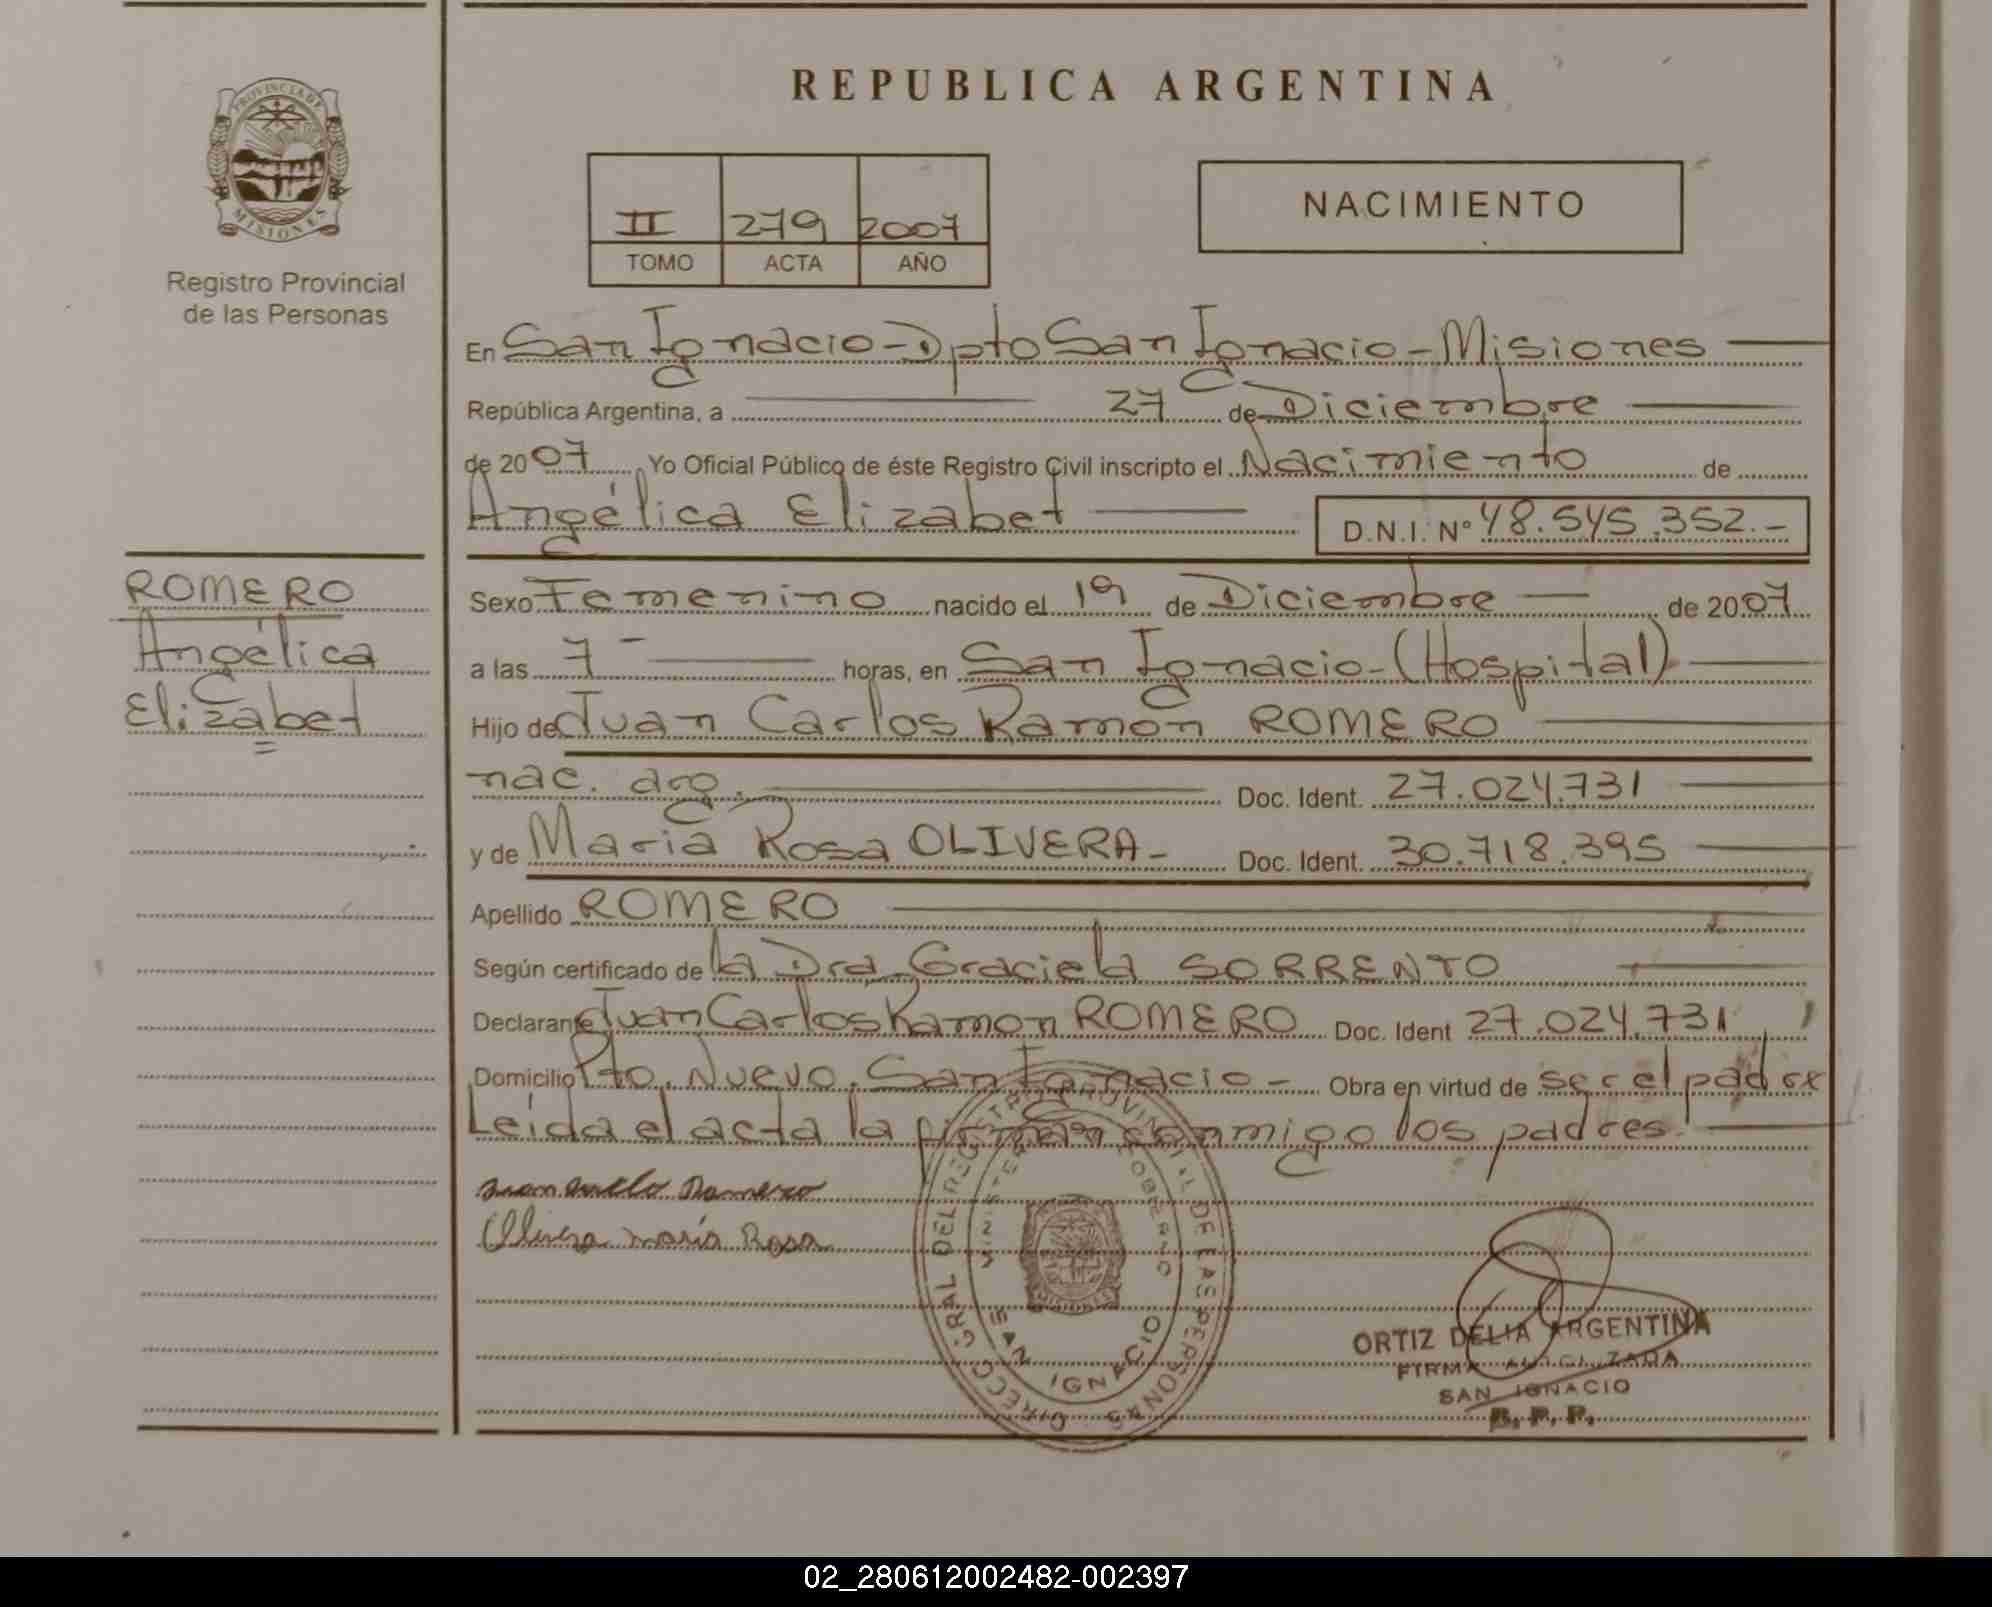 REPUBLICA ARGENTINA
PROVINCIA DE MISIONES
Registro Provincial
de las Personas
II 279 2007
TOMO ACTA AÑO
NACIMIENTO
En San Ignacio - Dpto San Ignacio - Misiones
República Argentina, a 27 de Diciembre
de 2007 Yo Oficial Público de éste Registro Civil inscripto el Nacimiento de
Angélica Elizabet
D.N.I. Nº 48.545.352.-
ROMERO
Angélica
Elizabet
Sexo Femenino nacido el 19 de Diciembre de 2007
a las 7 horas, en San Ignacio - (Hospital)
Hijo de Juan Carlos Ramon ROMERO
nac. arg. Doc. Ident. 27.024.731
y de Maria Rosa OLIVERA - Doc. Ident. 30.718.395
Apellido ROMERO
Según certificado de la Dra. Graciela SORRENTO
Declarante Juan Carlos Ramon ROMERO Doc. Ident 27.024.731
Domicilio Pto. Nuevo. San Ignacio - Obra en virtud de ser el padre
Leída el acta la firman conmigo los padres.
Romero
Olivera maría Rosa
DIRECC. GRAL DEL REGISTRO PROVINCIAL DE LAS PERSONAS
SAN IGNACIO
ORTIZ DELIA ARGENTINA
FIRMA AUTORIZADA
SAN IGNACIO
R. P. P.
02_280612002482-002397